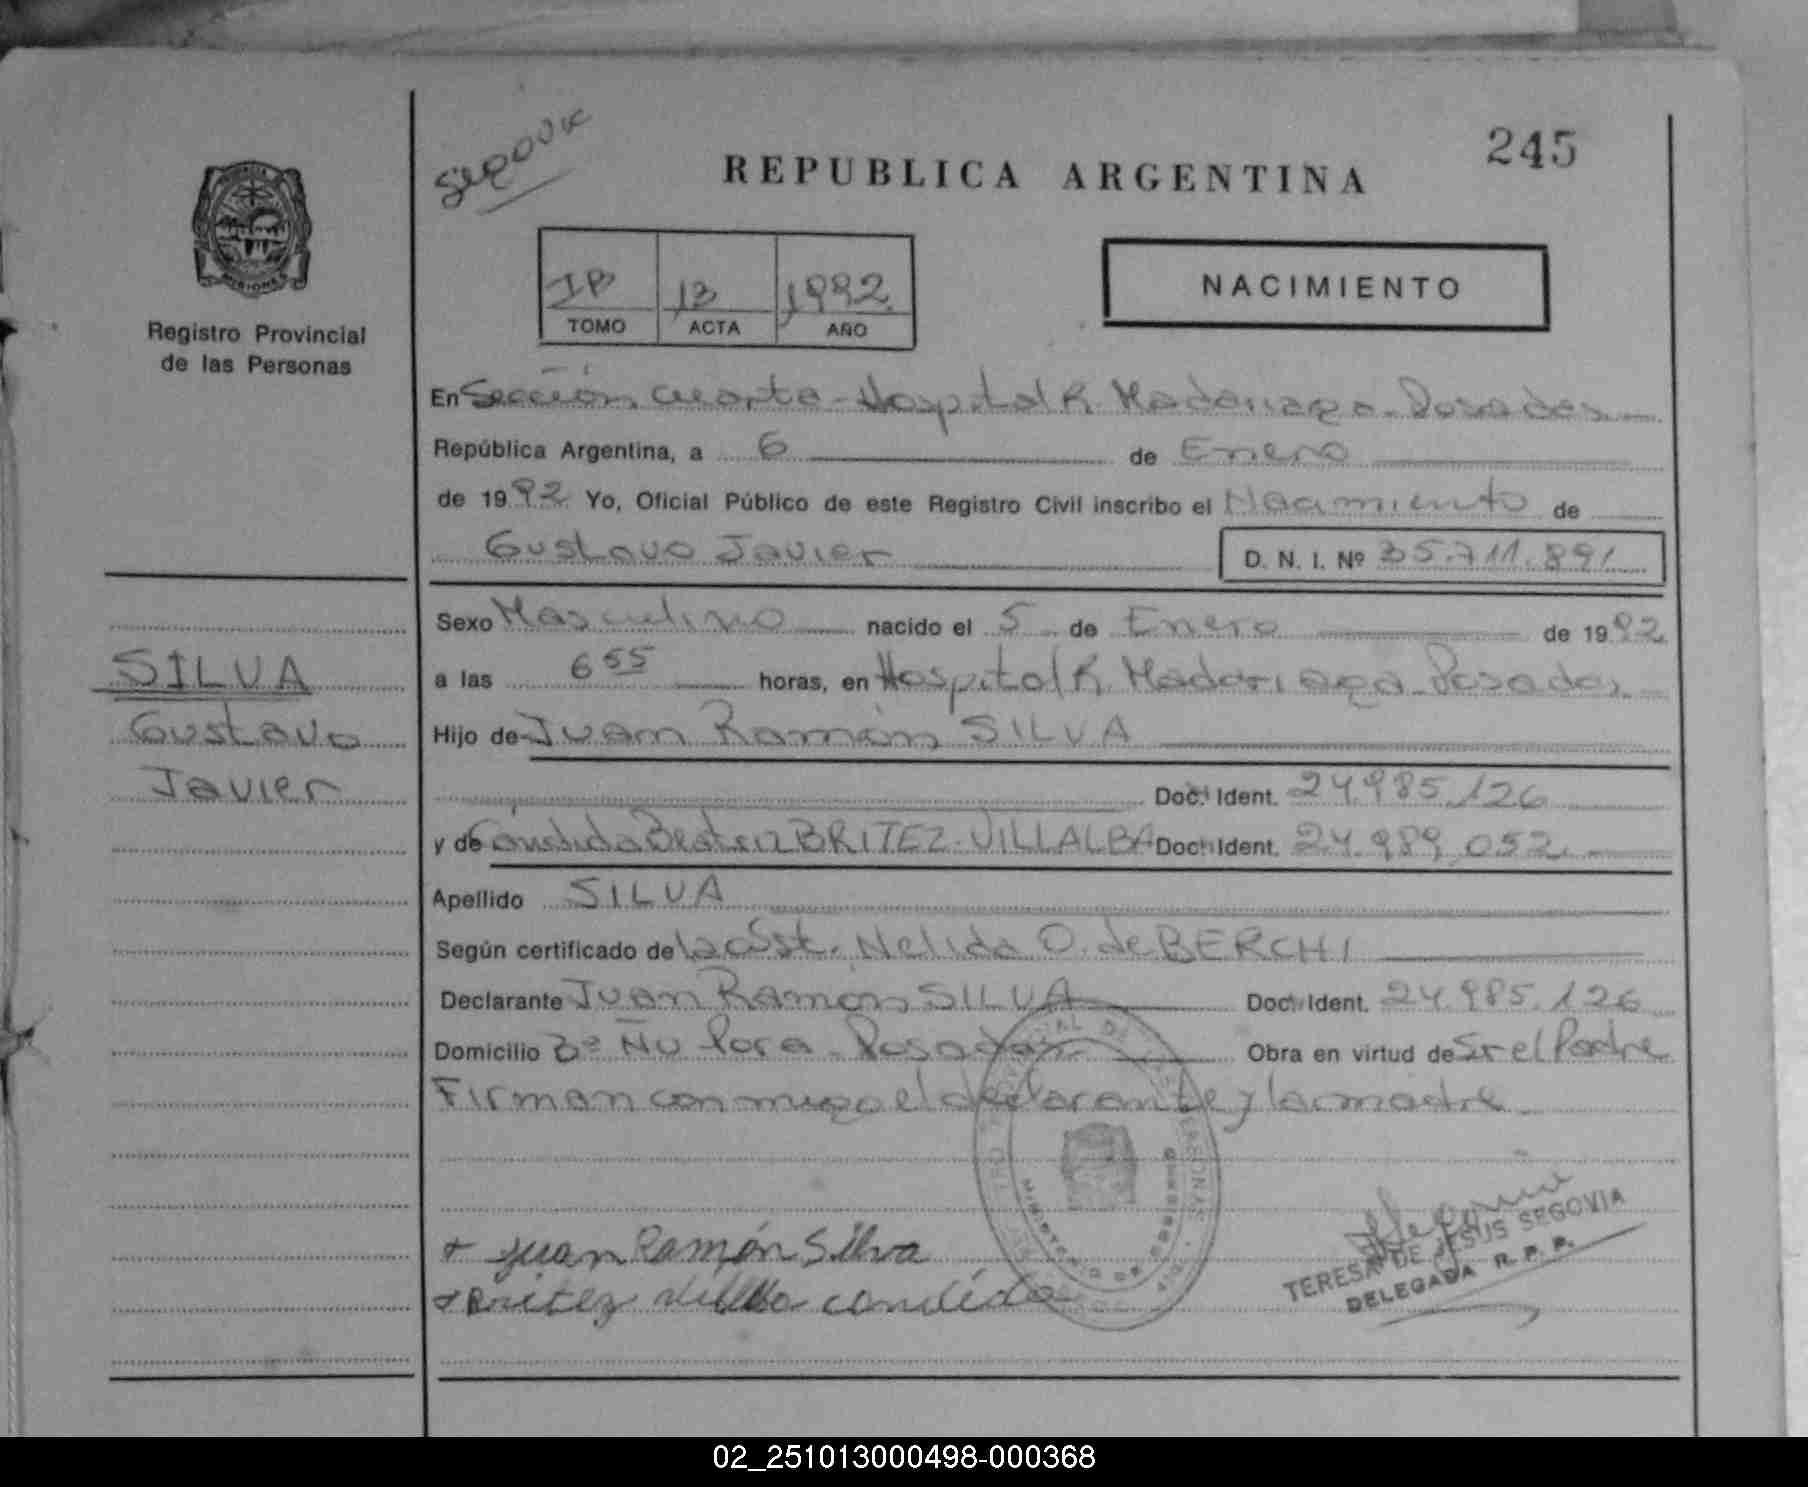 245
Segovia
REPUBLICA ARGENTINA
1B 13 1992
TOMO ACTA AÑO
NACIMIENTO
MISIONES
Registro Provincial
de las Personas
En Sección Cuarta - Hospital R. Madariaga - Posadas
República Argentina, a 6 de Enero
de 1992 Yo, Oficial Público de este Registro Civil inscribo el Nacimiento de
Gustavo Javier D. N. I. Nº 35.711.891
Sexo Masculino nacido el 5 de Enero de 1992
a las 6 55 horas, en Hospital R. Madariaga - Posadas
Hijo de Juan Ramón SILVA
Doc. Ident. 24.985.126
y de Cándida Beatriz BRITEZ-VILLALBA Doc. Ident. 24.989.052
Apellido SILVA
Según certificado de la Obst. Nelida O. de BERCHI
Declarante Juan Ramón SILVA Doc. Ident. 24.985.126
Domicilio Bº Ñu Pora - Posadas Obra en virtud de Sr el Padre
Firman conmigo el declarante y la madre
SILVA
Gustavo
Javier
+ Juan Ramón Silva
+ Britez Villalba candida
TERESA DE JESUS SEGOVIA
DELEGADA R. P. P.
02_251013000498-000368